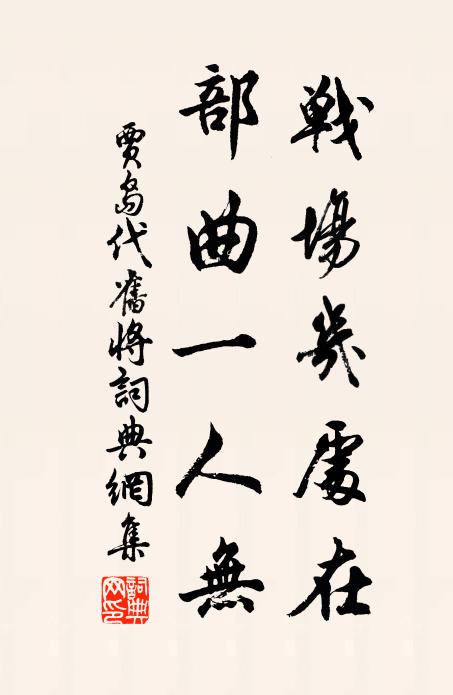 戰場幾處在
部曲一人無
賈島代舊將詞典網集
詞典
网印